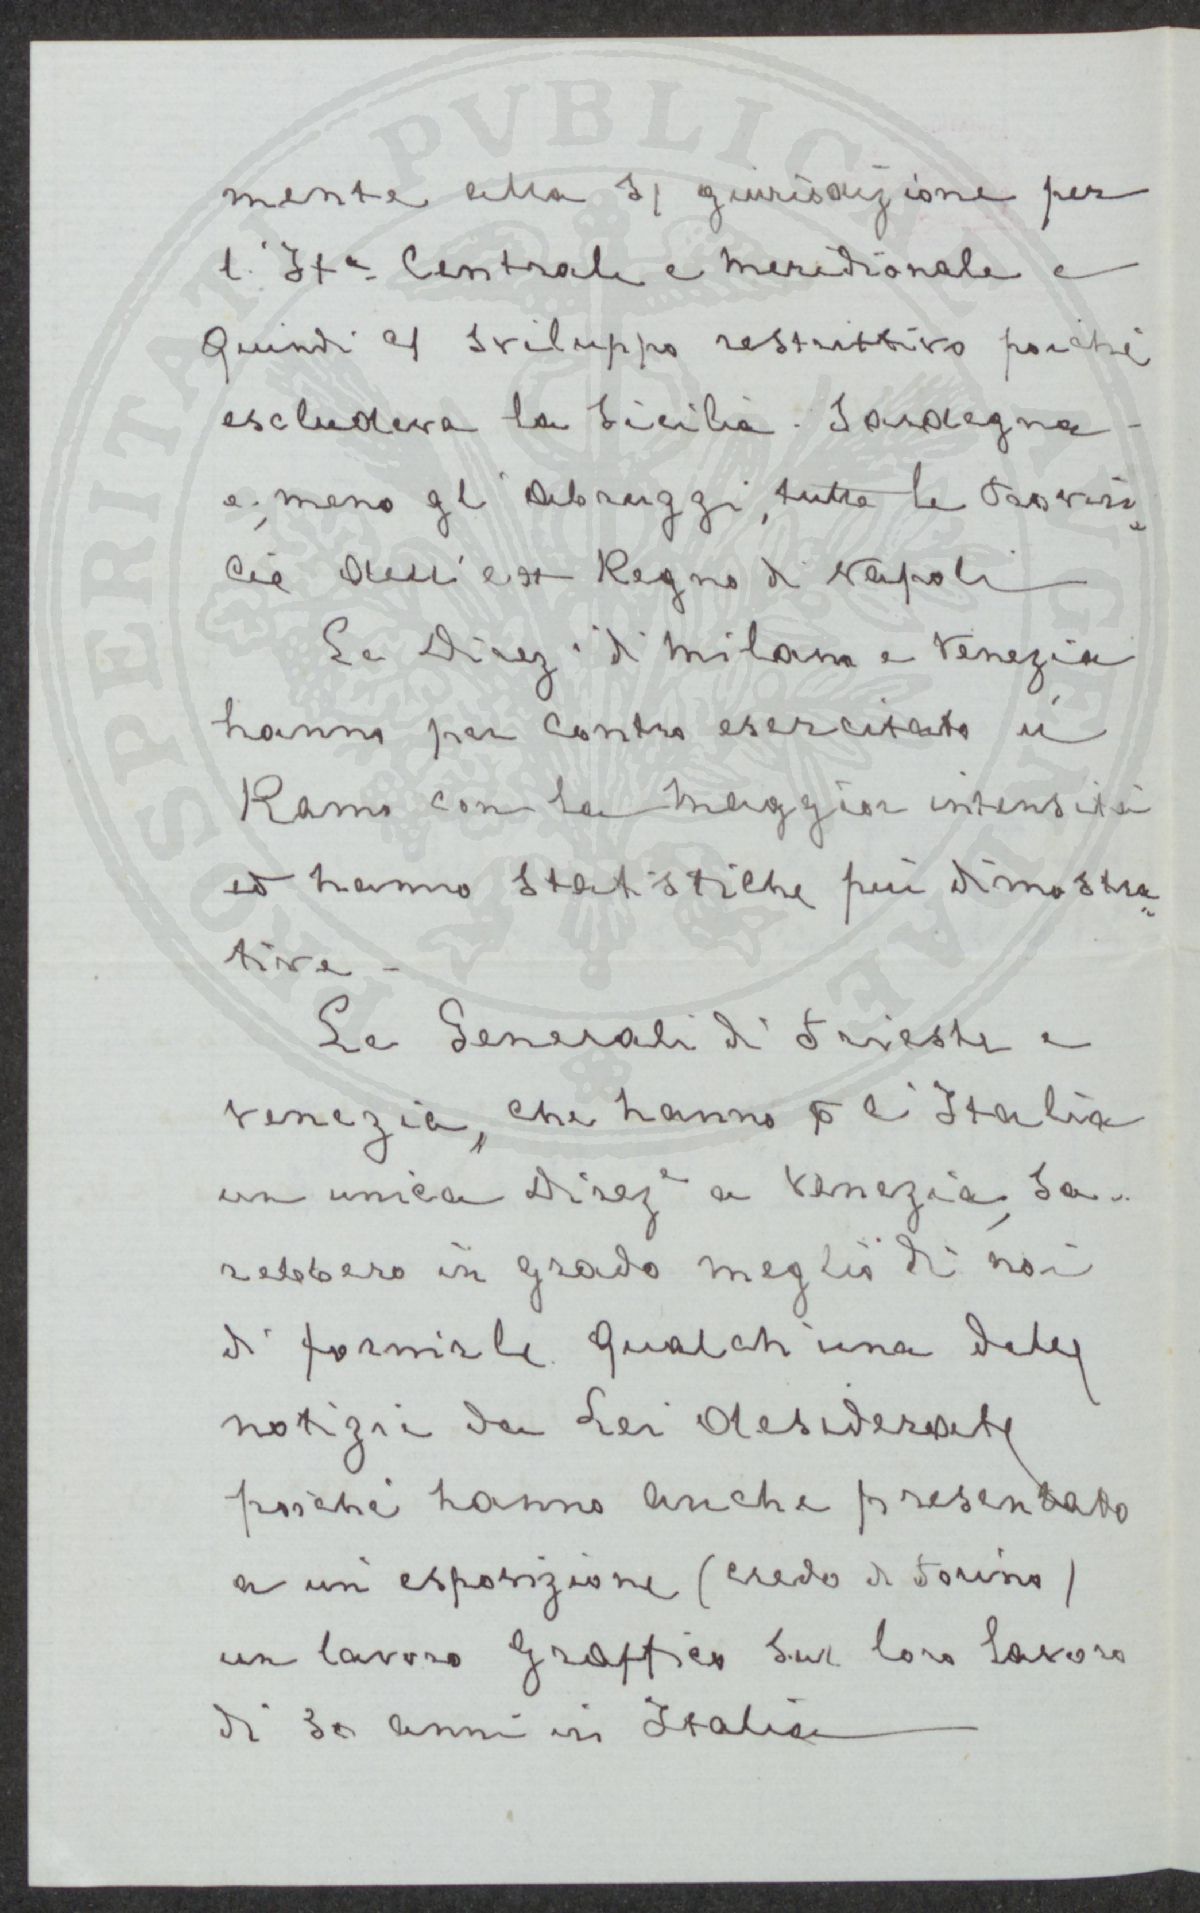 PROSPERITATI PVBLICAE AVGENDAE
mente alla S/ giurisdizione per
l'Ita. Centrale e Meridionale e
quindi a/ sviluppo restrittivo poichè
escludeva la Sicilia - Sardegna -
e, meno gli Abruzzi, tutte le Provin=
cie dell'ex Regno di Napoli
Le Direzi di Milano e Venezia
hanno per contro esercitato il
Ramo con la maggior intensità
ed hanno statistiche più dimostra=
tive -
Le Generali di Trieste e
Venezia, che hanno p l'Italia
un unica Direze a Venezia, sa=
rebbero in grado meglio di noi
di fornirle qualch'una delle
notizie da Lei desiderate
poichè hanno anche presentato
a un esposizione (credo di Torino)
un lavoro Graffico sul loro lavoro
di 50 anni in Italia